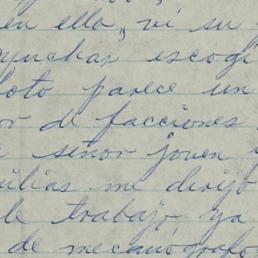 en ella, vi su
escogi
foto parece un
or de facciones
señor joven
ilias me dirijo
de trabajo ya
de mecanógrafo